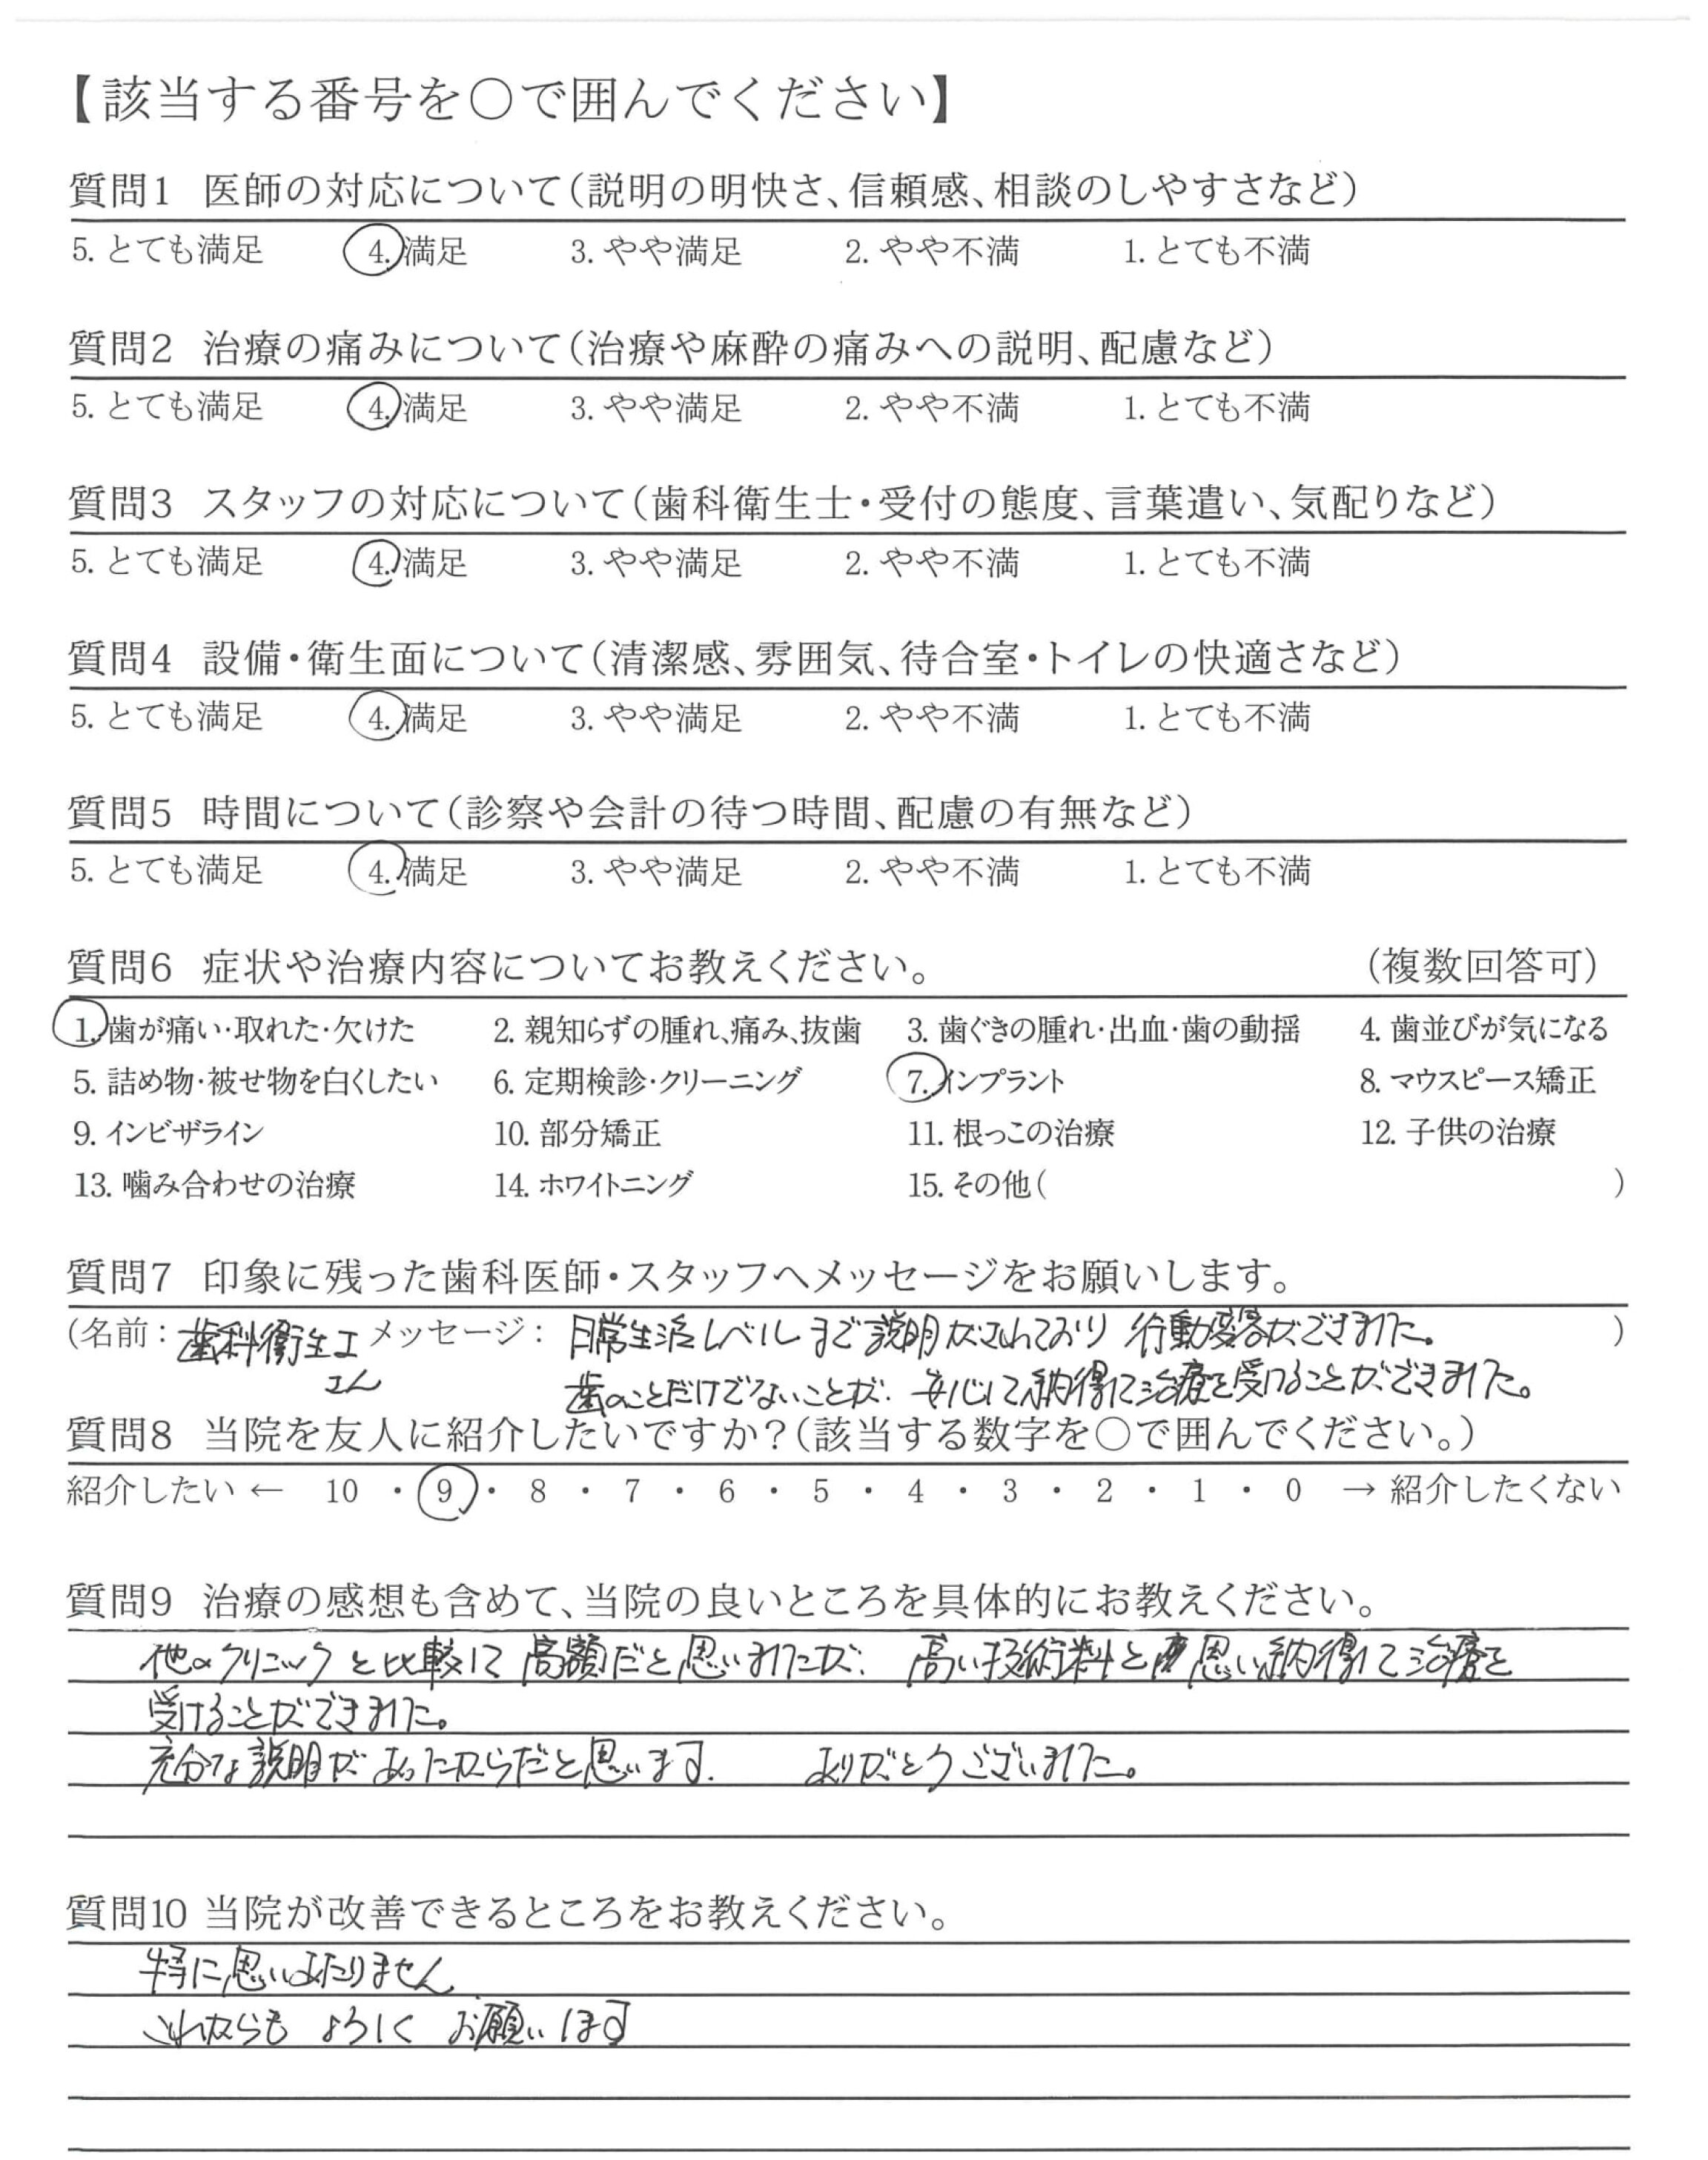 【該当する番号を〇で囲んでください】
質問1 医師の対応について(説明の明快さ、信頼感、相談のしやすさなど)
5. とても満足 4. 満足 3. やや満足 2. やや不満 1. とても不満
質問2 治療の痛みについて(治療や麻酔の痛みへの説明、配慮など)
5. とても満足 4. 満足 3. やや満足 2. やや不満 1. とても不満
質問3 スタッフの対応について(歯科衛生士・受付の態度、言葉遣い、気配りなど)
5. とても満足 4. 満足 3. やや満足 2. やや不満 1. とても不満
質問4 設備・衛生面について(清潔感、雰囲気、待合室・トイレの快適さなど)
5. とても満足 4. 満足 3. やや満足 2. やや不満 1. とても不満
質問5 時間について(診察や会計の待つ時間、配慮の有無など)
5. とても満足 4. 満足 3. やや満足 2. やや不満 1. とても不満
質問6 症状や治療内容についてお教えください。 (複数回答可)
1. 歯が痛い・取れた・欠けた 2. 親知らずの腫れ、痛み、抜歯 3. 歯ぐきの腫れ・出血・歯の動揺 4. 歯並びが気になる
5. 詰め物・被せ物を白くしたい 6. 定期検診・クリーニング 7. インプラント 8. マウスピース矯正
9. インビザライン 10. 部分矯正 11. 根っこの治療 12. 子供の治療
13. 噛み合わせの治療 14. ホワイトニング 15. その他( )
質問7 印象に残った歯科医師・スタッフへメッセージをお願いします。
(名前: 歯科衛生士 メッセージ: 日常生活レベルまで説明がされており 行動変容ができました。 )
さん 歯のことだけでないことが、安心して納得して治療を受けることができました。
質問8 当院を友人に紹介したいですか?(該当する数字を〇で囲んでください。)
紹介したい ← 10 ・ 9 ・ 8 ・ 7 ・ 6 ・ 5 ・ 4 ・ 3 ・ 2 ・ 1 ・ 0 → 紹介したくない
質問9 治療の感想も含めて、当院の良いところを具体的にお教えください。
他のクリニックと比較して高額だと思いましたが、高い技術料と思い納得して治療を
受けることができました。
充分な説明があったからだと思います. ありがとうございました。
質問10 当院が改善できるところをお教えください。
特に思いあたりません
これからも よろしく お願いします